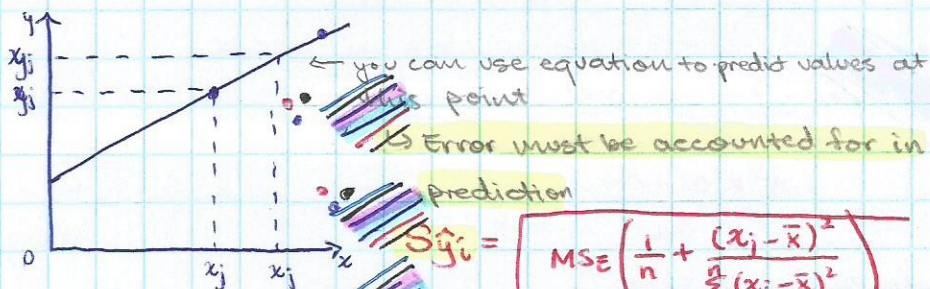 y
xyj
yj
← you can use equation to predict values at
this point
↳ Error must be accounted for in
prediction
Sŷi = √ MSE ( 1/n + (xj - x̄)² / Σ (xi - x̄)² )
n
0
xj xj x